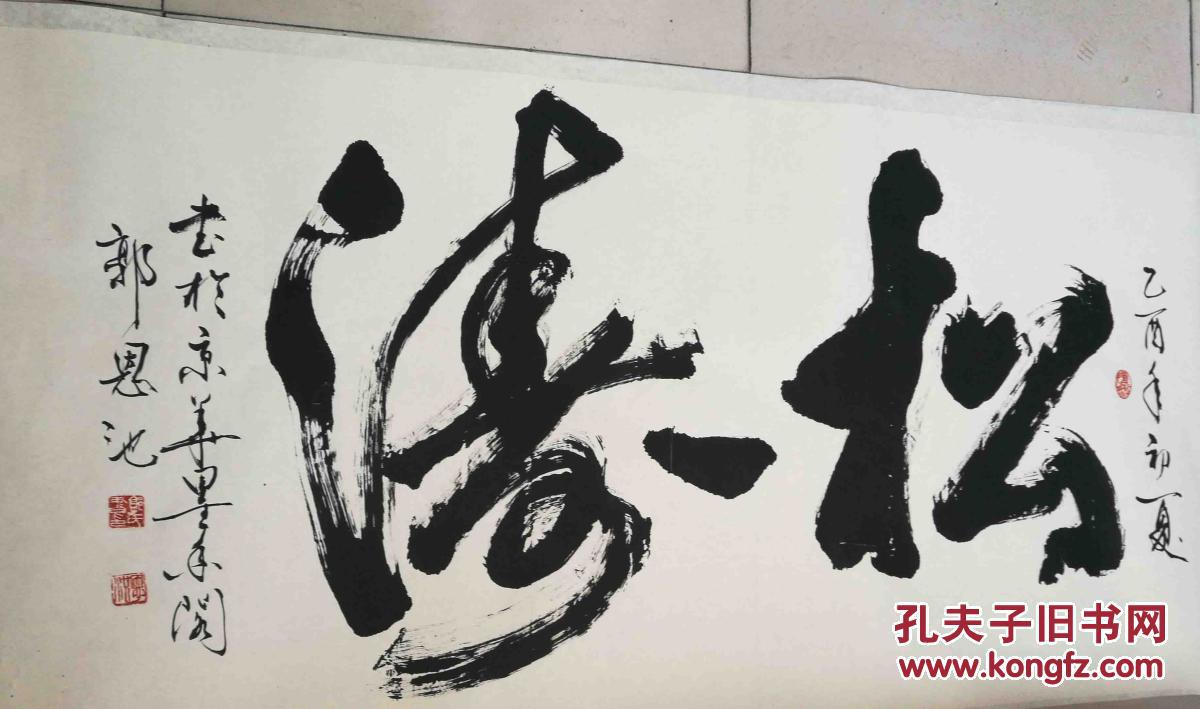 乙酉年初夏
松涛
书於京华墨香阁
郭恩池
孔夫子旧书网
www.kongfz.com